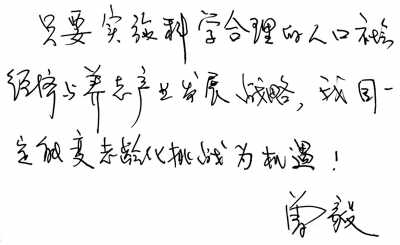 只要实施科学合理的人口社会
经济与养老产业发展战略，我国一
定能变老龄化挑战为机遇！
曾毅